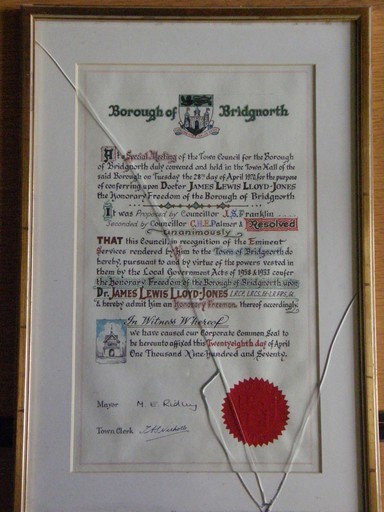 Borough of Bridgnorth
At a Special Meeting of the Town Council for the Borough
of Bridgnorth duly convened and held in the Town Hall of the
said Borough on Tuesday the 28th day of April 1970 for the purpose
of conferring upon Doctor JAMES LEWIS LLOYD-JONES
the Honorary Freedom of the Borough of Bridgnorth
It was Proposed by Councillor J.S.Franklin
Seconded by Councillor C.H.E.Palmer & Resolved
Unanimously
THAT this Council in recognition of the Eminent
Services rendered by Him to the Town of Bridgnorth do
hereby, pursuant to and by virtue of the powers vested in
them by the Local Government Acts of 1958 & 1933 confer
the Honorary Freedom of the Borough of Bridgnorth upon
Dr. JAMES LEWIS LLOYD-JONES
& hereby admit him an Honorary Freeman thereof accordingly
In Witness Whereof
we have caused our Corporate Common Seal to
be hereunto affixed this Twentyeighth day of April
One Thousand Nine Hundred and Seventy.
Mayor M. E. Ridley
Town Clerk